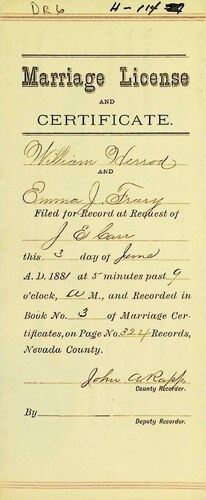 DR6 H-114
Marriage License
AND
CERTIFICATE.
William Herrod
AND
Emma J. Frary
Filed for Record at Request of
J E Carr
this 3 day of June
A. D. 1881 at 5 minutes past 9
o'clock, A M., and Recorded in
Book No. 3 of Marriage Cer-
tificates, on Page No. 324 Records,
Nevada County.
John A Rapp
County Recorder.
By
Deputy Recorder.